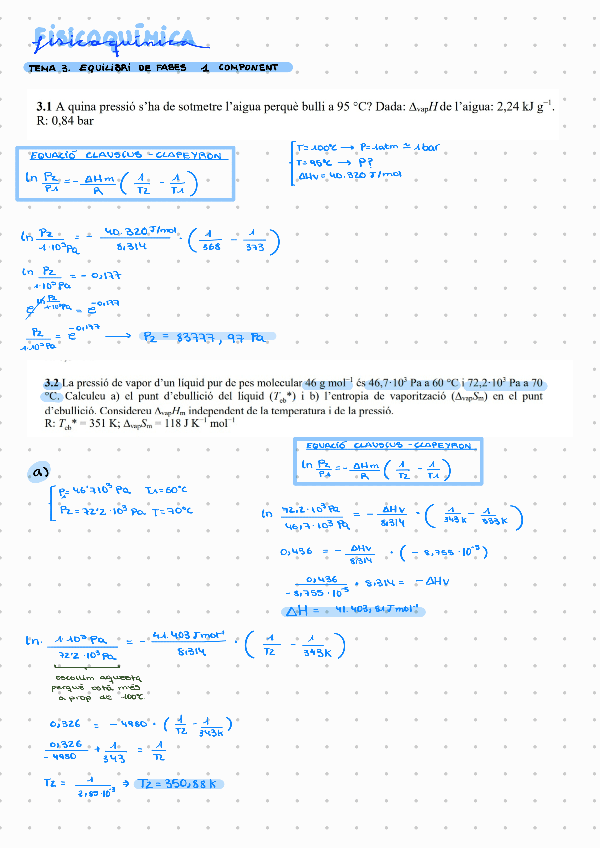 Fisicoquímica
TEMA 3. EQUILIBRI DE FASES 1 COMPONENT
3.1 A quina pressió s'ha de sotmetre l'aigua perquè bulli a 95 °C? Dada: ΔvapH de l'aigua: 2,24 kJ g⁻¹.
R: 0,84 bar
EQUACIÓ CLAUSIUS-CLAPEYRON
ln P2/P1 = - ΔHm/R (1/T2 - 1/T1)
T=100ºC → P=1atm ≃ 1bar
T=95ºC → P?
ΔHv = 40.320 J/mol
ln P2/1·10⁵Pa = - 40.320 J/mol/8,314 · (1/368 - 1/373)
ln P2/1·10⁵Pa = -0,177
e^(ln P2/1·10⁵Pa) = e^(-0,177)
P2/1·10⁵Pa = e^(-0,177) → P2 = 83777,97 Pa
3.2 La pressió de vapor d'un líquid pur de pes molecular 46 g mol⁻¹ és 46,7·10³ Pa a 60 °C i 72,2·10³ Pa a 70
°C. Calculeu a) el punt d'ebullició del líquid (Teb*) i b) l'entropia de vaporització (ΔvapSm) en el punt
d'ebullició. Considereu ΔvapHm independent de la temperatura i de la pressió.
R: Teb* = 351 K; ΔvapSm = 118 J K⁻¹ mol⁻¹
EQUACIÓ CLAUSIUS-CLAPEYRON
ln P2/P1 = - ΔHm/R (1/T2 - 1/T1)
a)
P1=46'7·10³ Pa T1=60ºC
P2=72'2·10³ Pa T=70ºC
ln 72,2·10³Pa/46,7·10³Pa = - ΔHv/8,314 · (1/343K - 1/333K)
0,436 = - ΔHv/8,314 · (-8,755·10⁻⁵)
0,436/-8,755·10⁻⁵ · 8,314 = -ΔHv
ΔH = 41.403,81 J mol⁻¹
ln 1·10⁵Pa/72'2·10³Pa = - 41.403 J mol⁻¹/8,314 · (1/T2 - 1/343K)
escollim aquesta
perquè està més
a prop de 100ºC
0,326 = -4980 · (1/T2 - 1/343K)
0,326/-4980 + 1/343 = 1/T2
T2 = 1/2,85·10⁻³ ⇒ T2 = 350,88 K